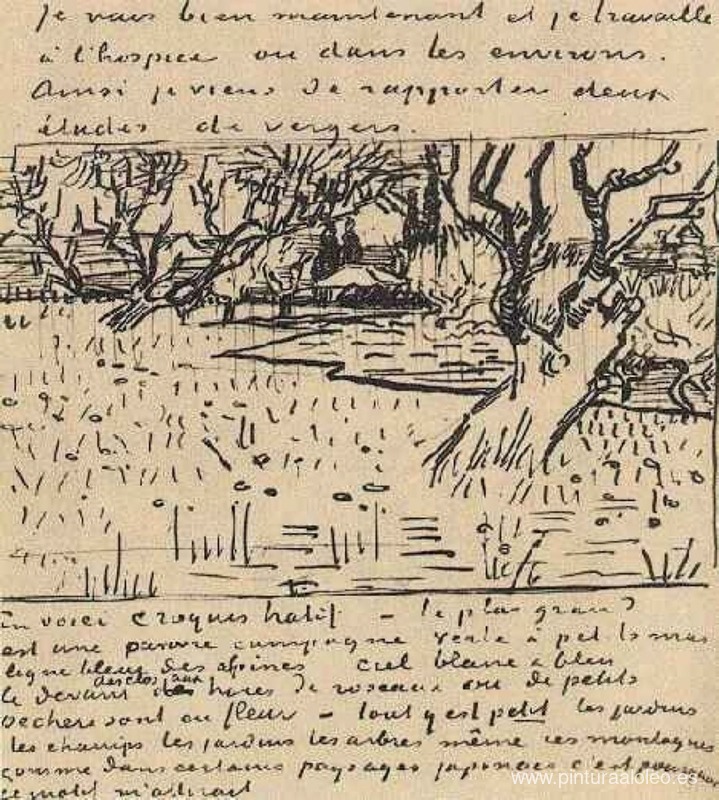 Je vais bien maintenant et je travaille
à l'hospice ou dans les environs.
Ainsi je viens de rapporter deux
études de vergers.
En voici croquis hatif – le plus grand
est une pauvre campagne verte à petits mas
ligne bleue des alpines ciel blanc & bleu
le devant des clos aux haies de roseaux où de petits
pechers sont en fleur – tout y est petit les jardins
les champs les jardins les arbres même ces montagnes
comme dans certains paysages japonais c'est pourquoi
ce motif m'attirait
www.pinturaaloleo.es